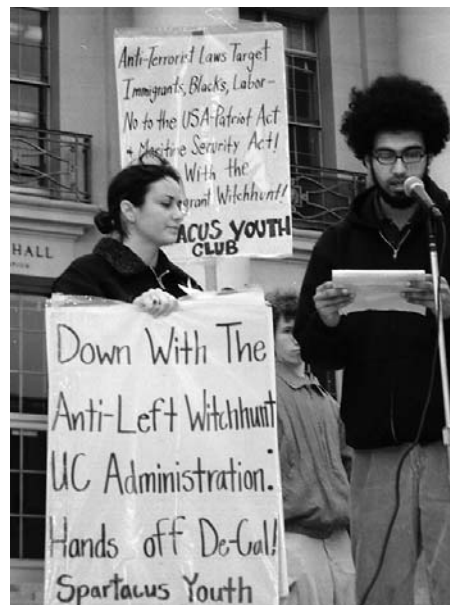 Anti-Terrorist Laws Target
Immigrants, Blacks, Labor—
No to the USA-Patriot Act
& Maritime Security Act!
With the
grant Witchhunt!
ACUS YOUTH
CLUB
HALL
Down With The
Anti-Left Witchhunt
UC Administration:
Hands off De-Cal!
Spartacus Youth